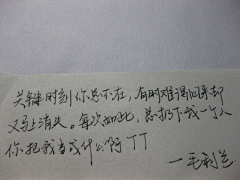 关键时刻你总不在，有时难得回来却
又马上消失。每次如此，总扔下我一个人
你把我当成什么啊TT
—毛利兰